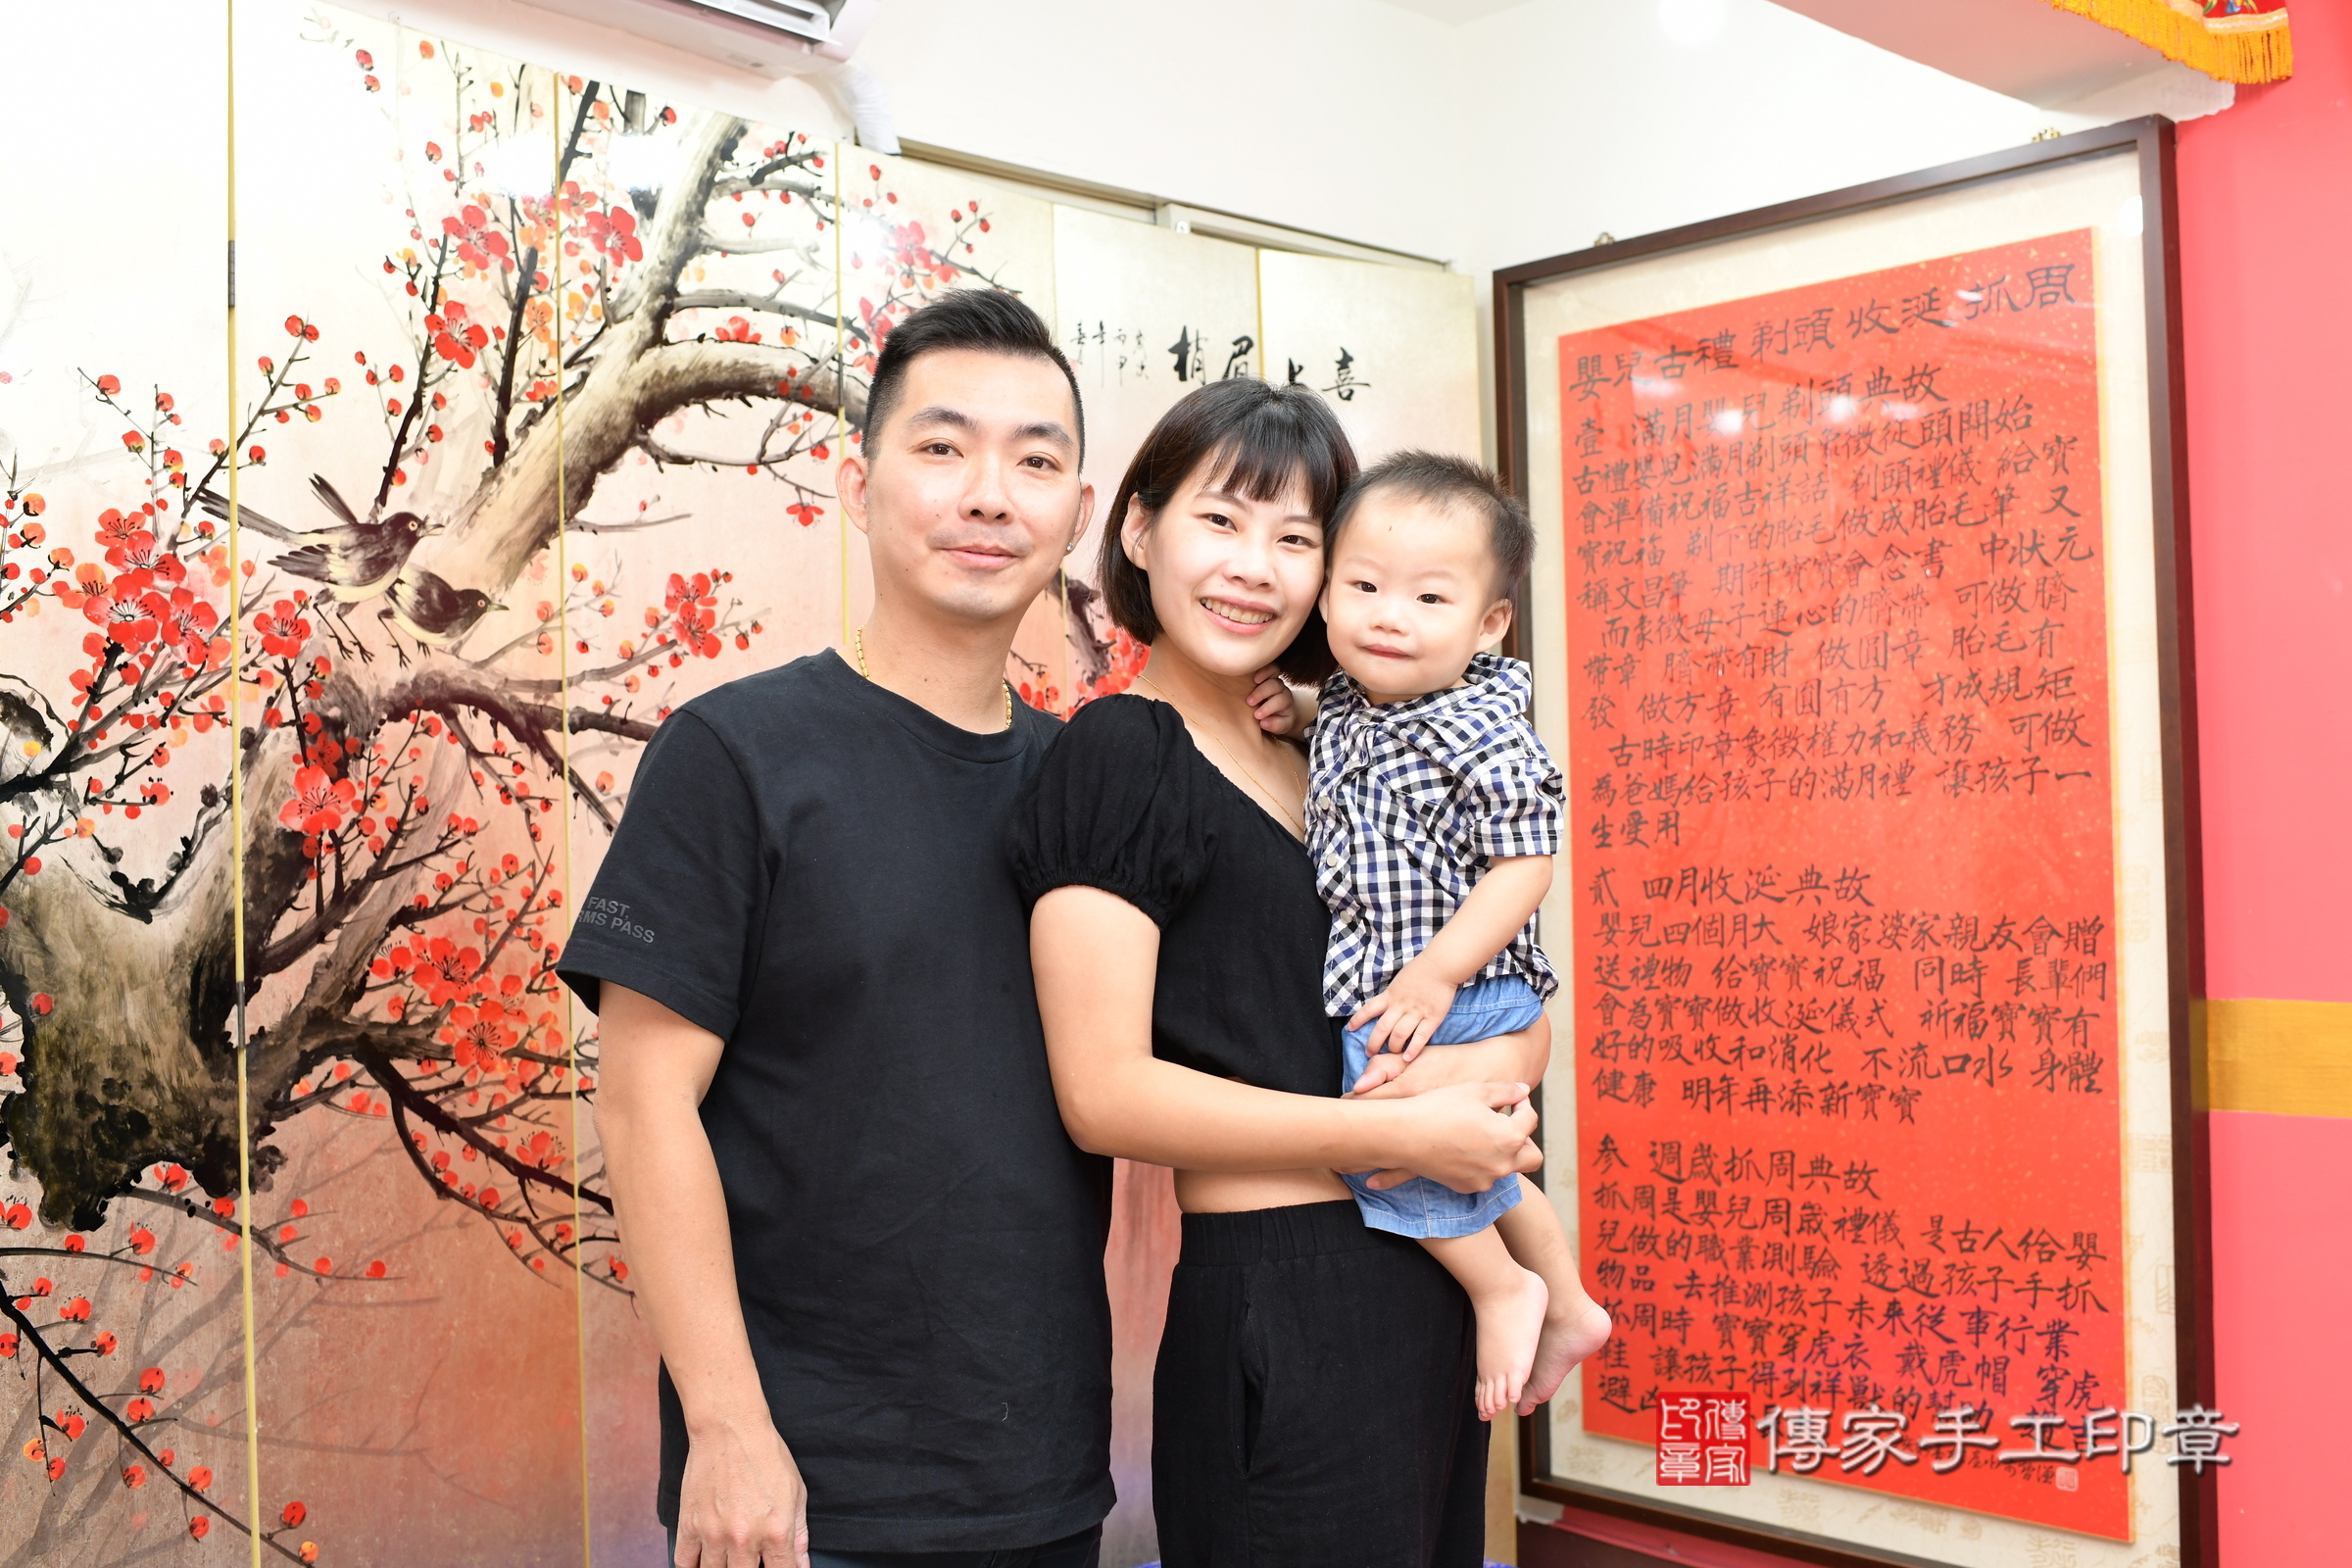 喜上眉梢
FAST,
RMS PASS
嬰兒古禮 剃頭 收涎 抓周
壹 滿月嬰兒剃頭典故
古禮嬰兒滿月剃頭象徵從頭開始
會準備祝福吉祥話 剃頭禮儀 給寶
寶祝福 剃下的胎毛做成胎毛筆 又
稱文昌筆 期許寶寶會念書 中狀元
而象徵母子連心的臍帶 可做臍
帶章 臍帶有財 做圓章 胎毛有
發 做方章 有圓有方 才成規矩
古時印章象徵權力和義務 可做
為爸媽給孩子的滿月禮 讓孩子一
生受用
貳 四月收涎典故
嬰兒四個月大 娘家婆家親友會贈
送禮物 給寶寶祝福 同時 長輩們
會為寶寶做收涎儀式 祈福寶寶有
好的吸收和消化 不流口水 身體
健康 明年再添新寶寶
參 週歲抓周典故
抓周是嬰兒周歲禮儀 是古人給嬰
兒做的職業測驗 透過孩子手抓
物品 去推測孩子未來從事行業
抓周時 寶寶穿虎衣 戴虎帽 穿虎
鞋 讓孩子得到祥獸的幫助
避凶
印章傳家
傳家手工印章